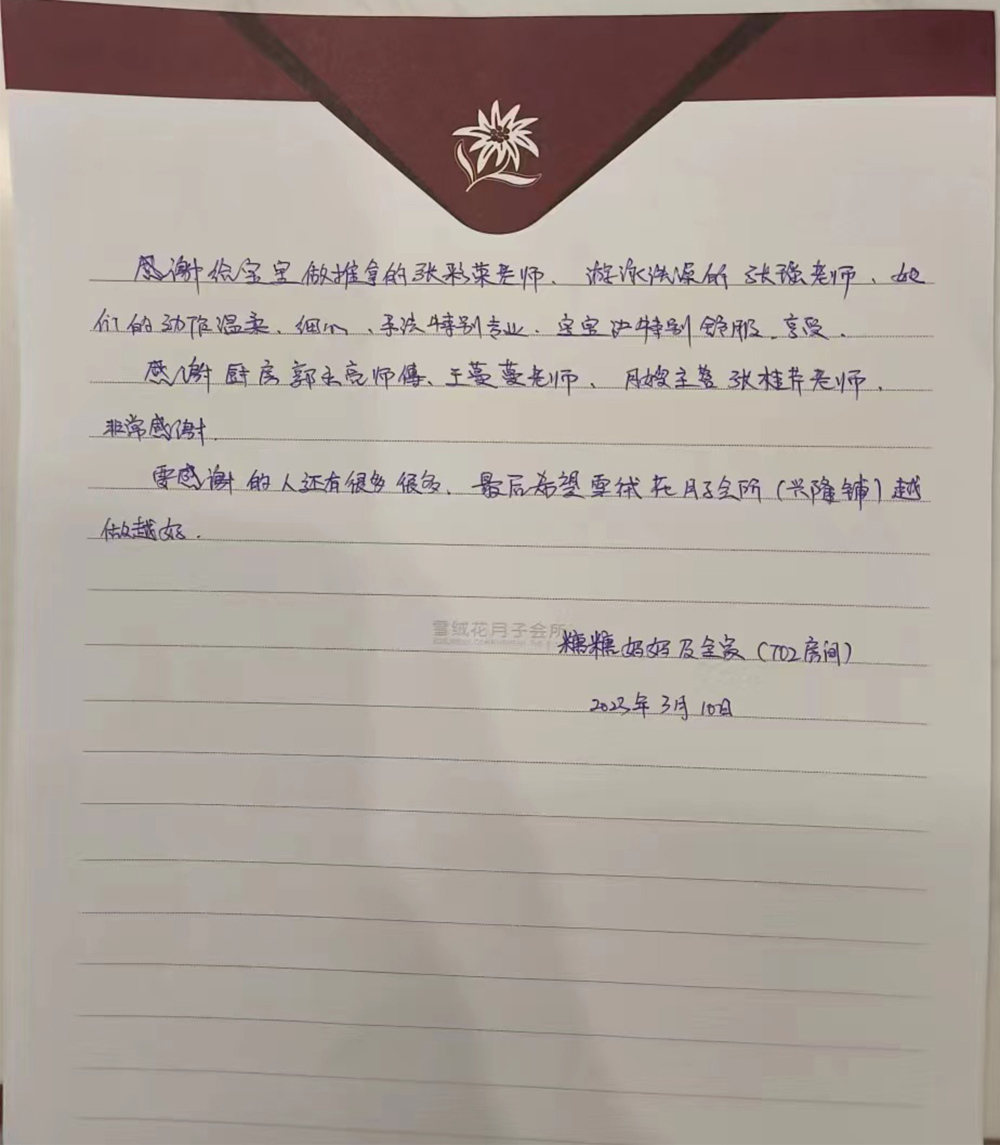 感谢给宝宝做推拿的张彩荣老师、游泳洗澡的张强老师、她
们的动作温柔、细心、手法特别专业、宝宝也特别舒服、享受.
感谢厨房郭玉亮师傅、王蔓蔓老师、月嫂主管张桂芹老师.
非常感谢.
要感谢的人还有很多很多、最后希望雪绒花月子会所(兴隆铺)越
做越好.
雪绒花月子会所
糖糖妈妈及全家(702房间)
2023年3月10日